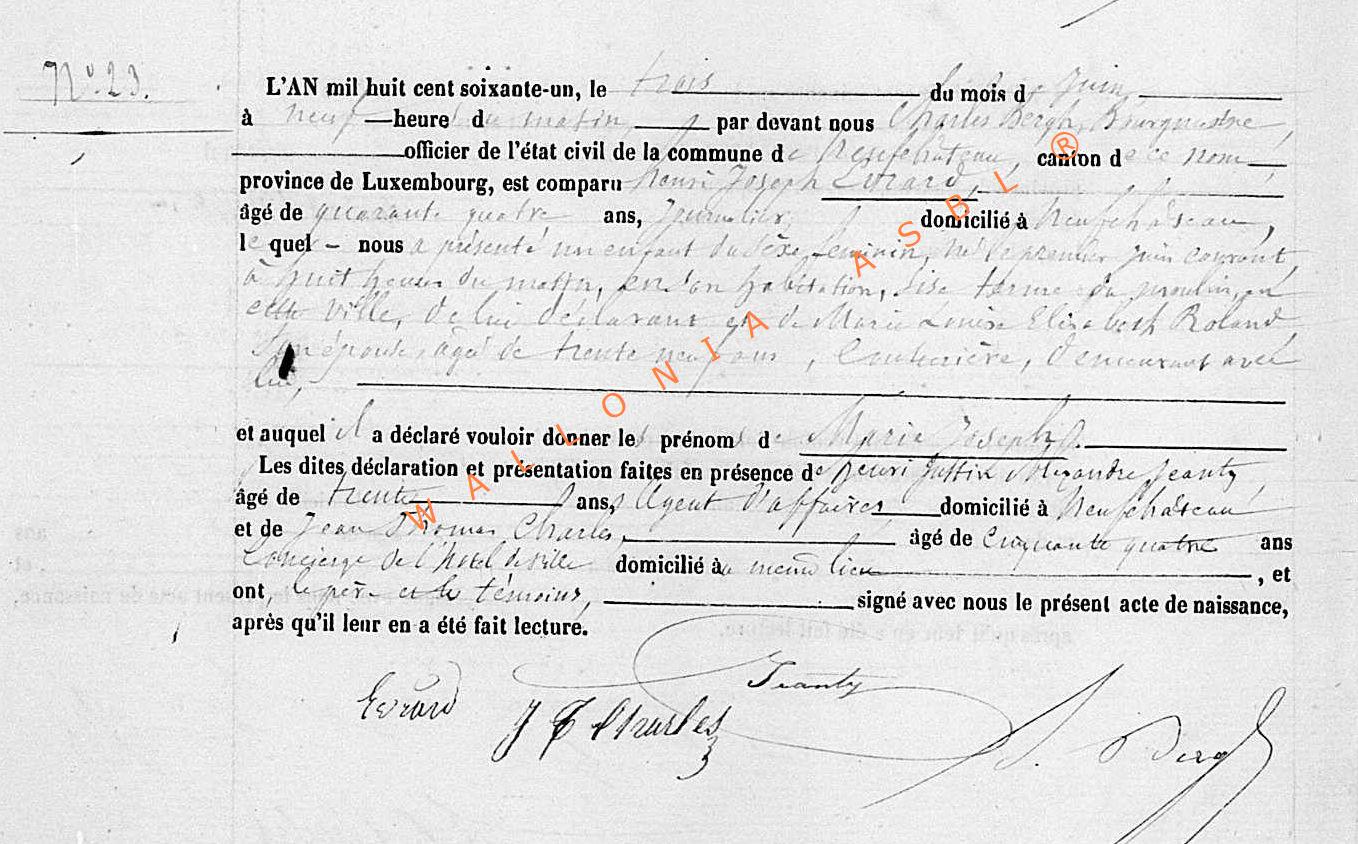 N° 23.
L'AN mil huit cent soixante-un, le trois du mois de Juin,
à neuf heure du matin, par devant nous Charles Bergh, Bourgmestre,
officier de l'état civil de la commune de Neufchâteau, canton de ce nom,
province de Luxembourg, est comparu Henri Joseph Evrard,
âgé de quarante quatre ans, Journalier, domicilié à Neufchâteau,
le quel nous a présenté un enfant du sexe féminin, né le premier Juin courant,
à huit heures du matin, en son habitation, sise ferme du moulin, en
cette ville, de lui déclarant et de Marie Louise Elisabeth Roland,
Son épouse, agée de trente neuf ans, Couturière, demeurant avec
lui,
et auquel il a déclaré vouloir donner les prénoms de Marie Joseph.
Les dites déclaration et présentation faites en présence de Henri Justin Alexandre Jeanty,
âgé de trente ans, Agent d'affaires, domicilié à Neufchâteau
et de Jean Thomas Charles, âgé de Cinquante quatre ans
Concierge de l'hotel de ville domicilié au même lieu, et
ont, le père et les témoins, signé avec nous le présent acte de naissance,
après qu'il leur en a été fait lecture.
Evrard J T Charles Jeanty Bergh
WALLONIA ASBL ®